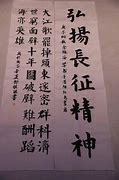 弘揚長征精神
大江歌罷掉頭東邃密群科濟
世窮面壁十年圖破壁難酬蹈
海亦英雄